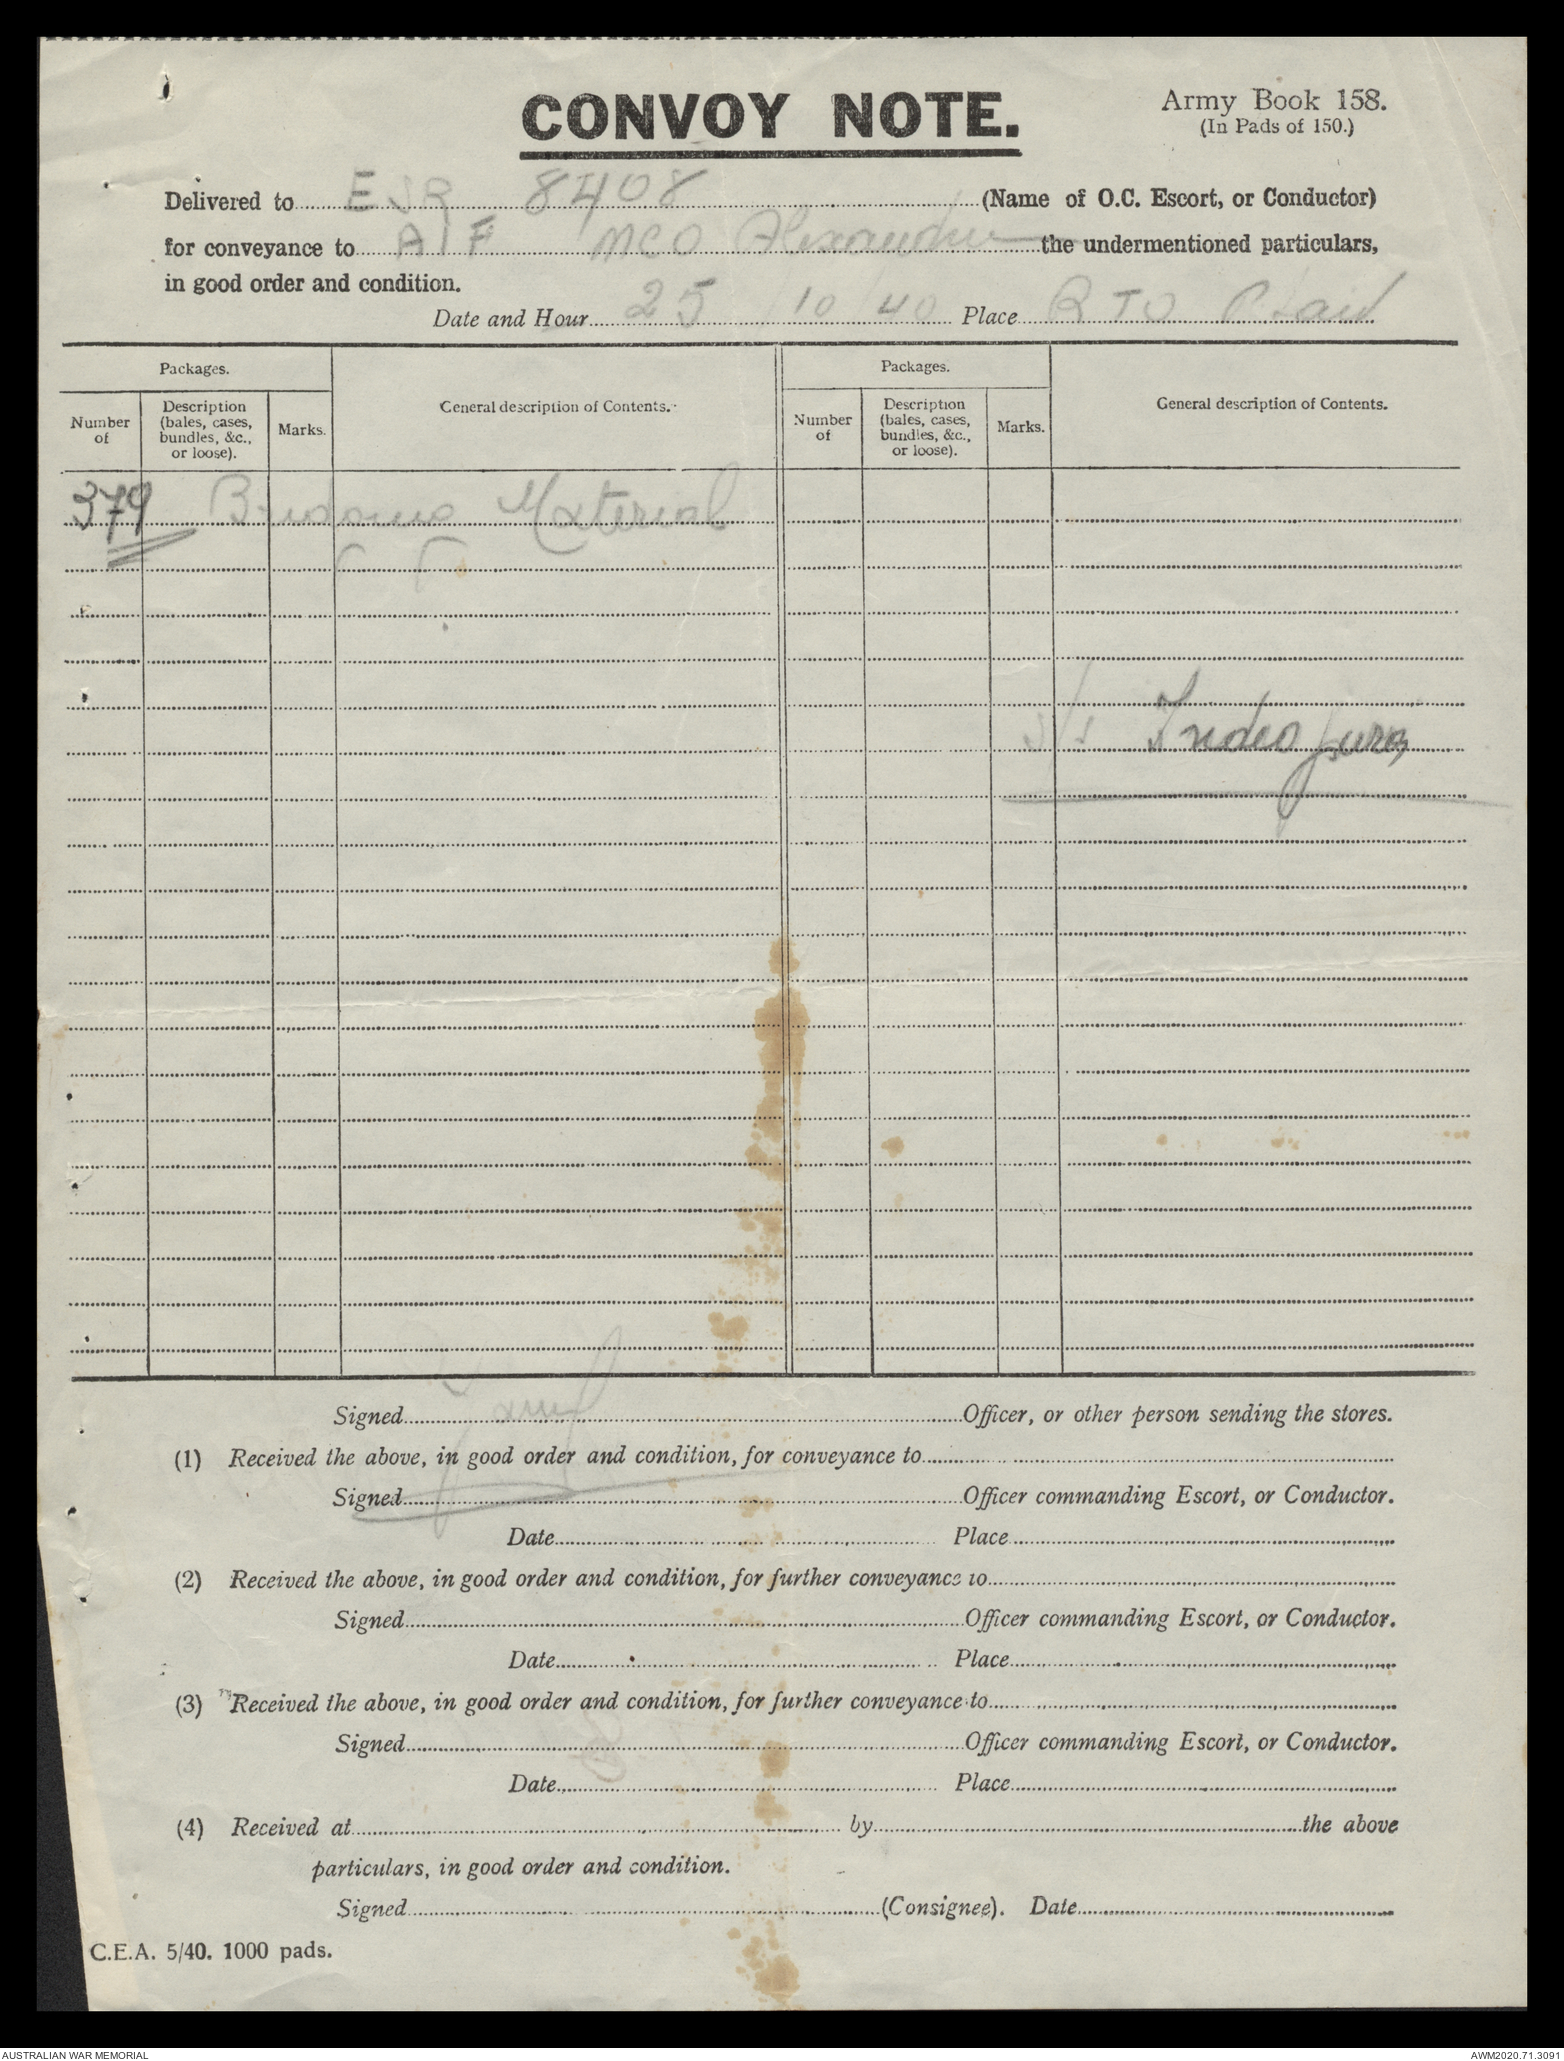 CONVOY NOTE.
Army Book 158.
(In Pads of 150.)
Delivered to ESR 8408 (Name of O.C. Escort, or Conductor)
for conveyance to AIF MCO Alexandria the undermentioned particulars,
in good order and condition.
Date and Hour 25/10/40 Place RTO P Said
Packages. Packages.
Number of Description (bales, cases, bundles, &c., or loose). Marks. General description of Contents. Number of Description (bales, cases, bundles, &c., or loose). Marks. General description of Contents.
379 Material
s/s
Signed Officer, or other person sending the stores.
(1) Received the above, in good order and condition, for conveyance to
Signed Officer commanding Escort, or Conductor.
Date Place
(2) Received the above, in good order and condition, for further conveyance to
Signed Officer commanding Escort, or Conductor.
Date Place
(3) Received the above, in good order and condition, for further conveyance to
Signed Officer commanding Escort, or Conductor.
Date Place
(4) Received at by the above
particulars, in good order and condition.
Signed (Consignee). Date
C.E.A. 5/40. 1000 pads.
AUSTRALIAN WAR MEMORIAL AWM2020.71.3091